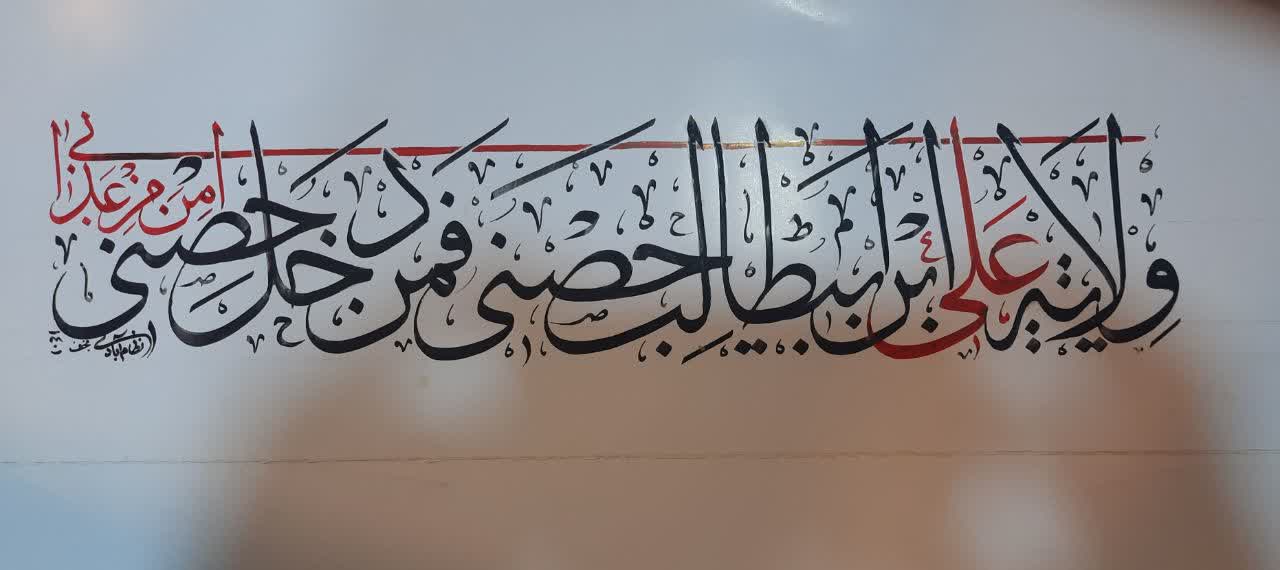 ولاية علي ابن ابيطالب حصني فمن دخل حصني امن من عذابي
نظام آبادي نجف